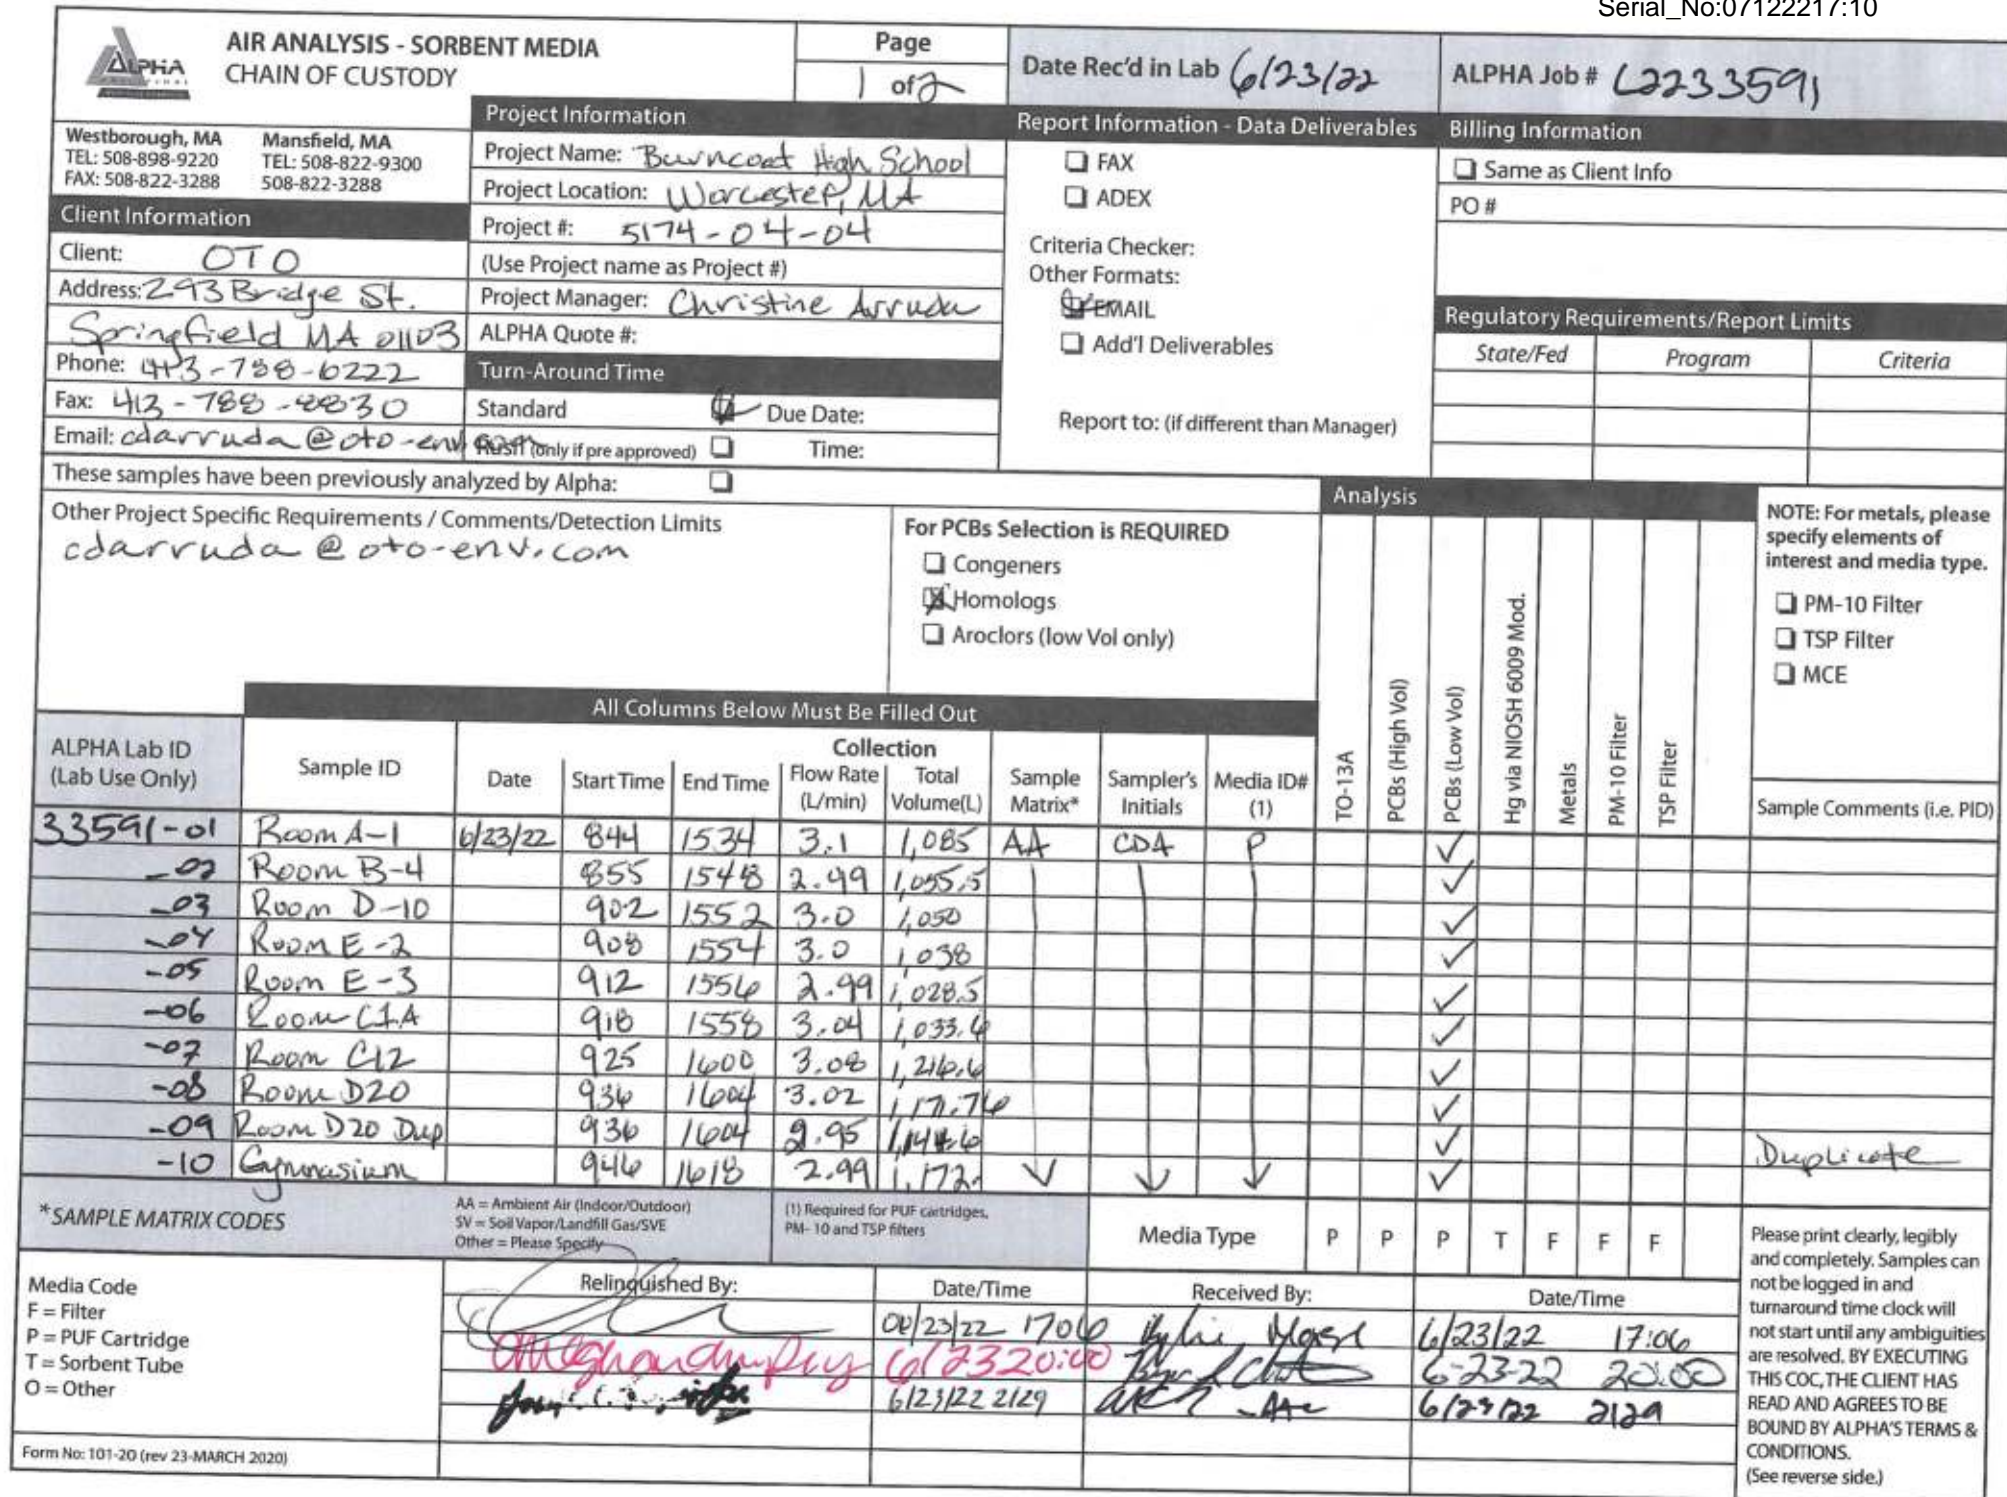 Serial_No:07122217:10
AIR ANALYSIS - SORBENT MEDIA
CHAIN OF CUSTODY
Page
1 of 2
Date Rec'd in Lab 6/23/22
ALPHA Job # L2233591
ALPHA
Westborough, MA Mansfield, MA
TEL: 508-898-9220 TEL: 508-822-9300
FAX: 508-822-3288 508-822-3288
Client Information
Client: OTO
Address: 293 Bridge St.
Springfield MA 01103
Phone: 413-788-6222
Fax: 413-788-8830
Email: cdarruda@oto-env
Project Information
Project Name: Burncoat High School
Project Location: Worcester, MA
Project #: 5174-04-04
(Use Project name as Project #)
Project Manager: Christine Arruda
ALPHA Quote #:
Turn-Around Time
Standard Due Date:
Rush (only if pre approved) Time:
Report Information - Data Deliverables
FAX
ADEX
Criteria Checker:
Other Formats:
EMAIL
Add'l Deliverables
Report to: (if different than Manager)
Billing Information
Same as Client Info
PO #
Regulatory Requirements/Report Limits
State/Fed Program Criteria
These samples have been previously analyzed by Alpha:
Other Project Specific Requirements / Comments/Detection Limits
cdarruda@oto-env.com
For PCBs Selection is REQUIRED
Congeners
Homologs
Aroclors (low Vol only)
Analysis
TO-13A
PCBs (High Vol)
PCBs (Low Vol)
Hg via NIOSH 6009 Mod.
Metals
PM-10 Filter
TSP Filter
NOTE: For metals, please
specify elements of
interest and media type.
PM-10 Filter
TSP Filter
MCE
Sample Comments (i.e. PID)
All Columns Below Must Be Filled Out
ALPHA Lab ID
(Lab Use Only)
Sample ID
Collection
Date Start Time End Time Flow Rate (L/min) Total Volume(L) Sample Matrix* Sampler's Initials Media ID# (1)
33591-01 Room A-1 6/23/22 844 1534 3.1 1,085 AA CDA P ✓
-02 Room B-4 855 1548 2.99 1,055.5 ✓
-03 Room D-10 902 1552 3.0 1,050 ✓
-04 Room E-2 908 1554 3.0 1,038 ✓
-05 Room E-3 912 1556 2.99 1,028.5 ✓
-06 Room C1A 918 1558 3.04 1,033.6 ✓
-07 Room C12 925 1600 3.08 1,216.6 ✓
-08 Room D20 936 1604 3.02 1,171.76 ✓
-09 Room D20 Dup 936 1604 2.95 1,144.6 ✓ Duplicate
-10 Gymnasium 946 1618 2.99 1,172. ✓
*SAMPLE MATRIX CODES
AA = Ambient Air (Indoor/Outdoor)
SV = Soil Vapor/Landfill Gas/SVE
Other = Please Specify
(1) Required for PUF cartridges,
PM- 10 and TSP filters
Media Type P P P T F F F
Media Code
F = Filter
P = PUF Cartridge
T = Sorbent Tube
O = Other
Relinquished By: Date/Time Received By: Date/Time
06/23/22 1706 6/23/22 17:06
6/23 20:00 6-23-22 20:00
6/23/22 2129 6/23/22 2129
Please print clearly, legibly
and completely. Samples can
not be logged in and
turnaround time clock will
not start until any ambiguities
are resolved. BY EXECUTING
THIS COC, THE CLIENT HAS
READ AND AGREES TO BE
BOUND BY ALPHA'S TERMS &
CONDITIONS.
(See reverse side.)
Form No: 101-20 (rev 23-MARCH 2020)